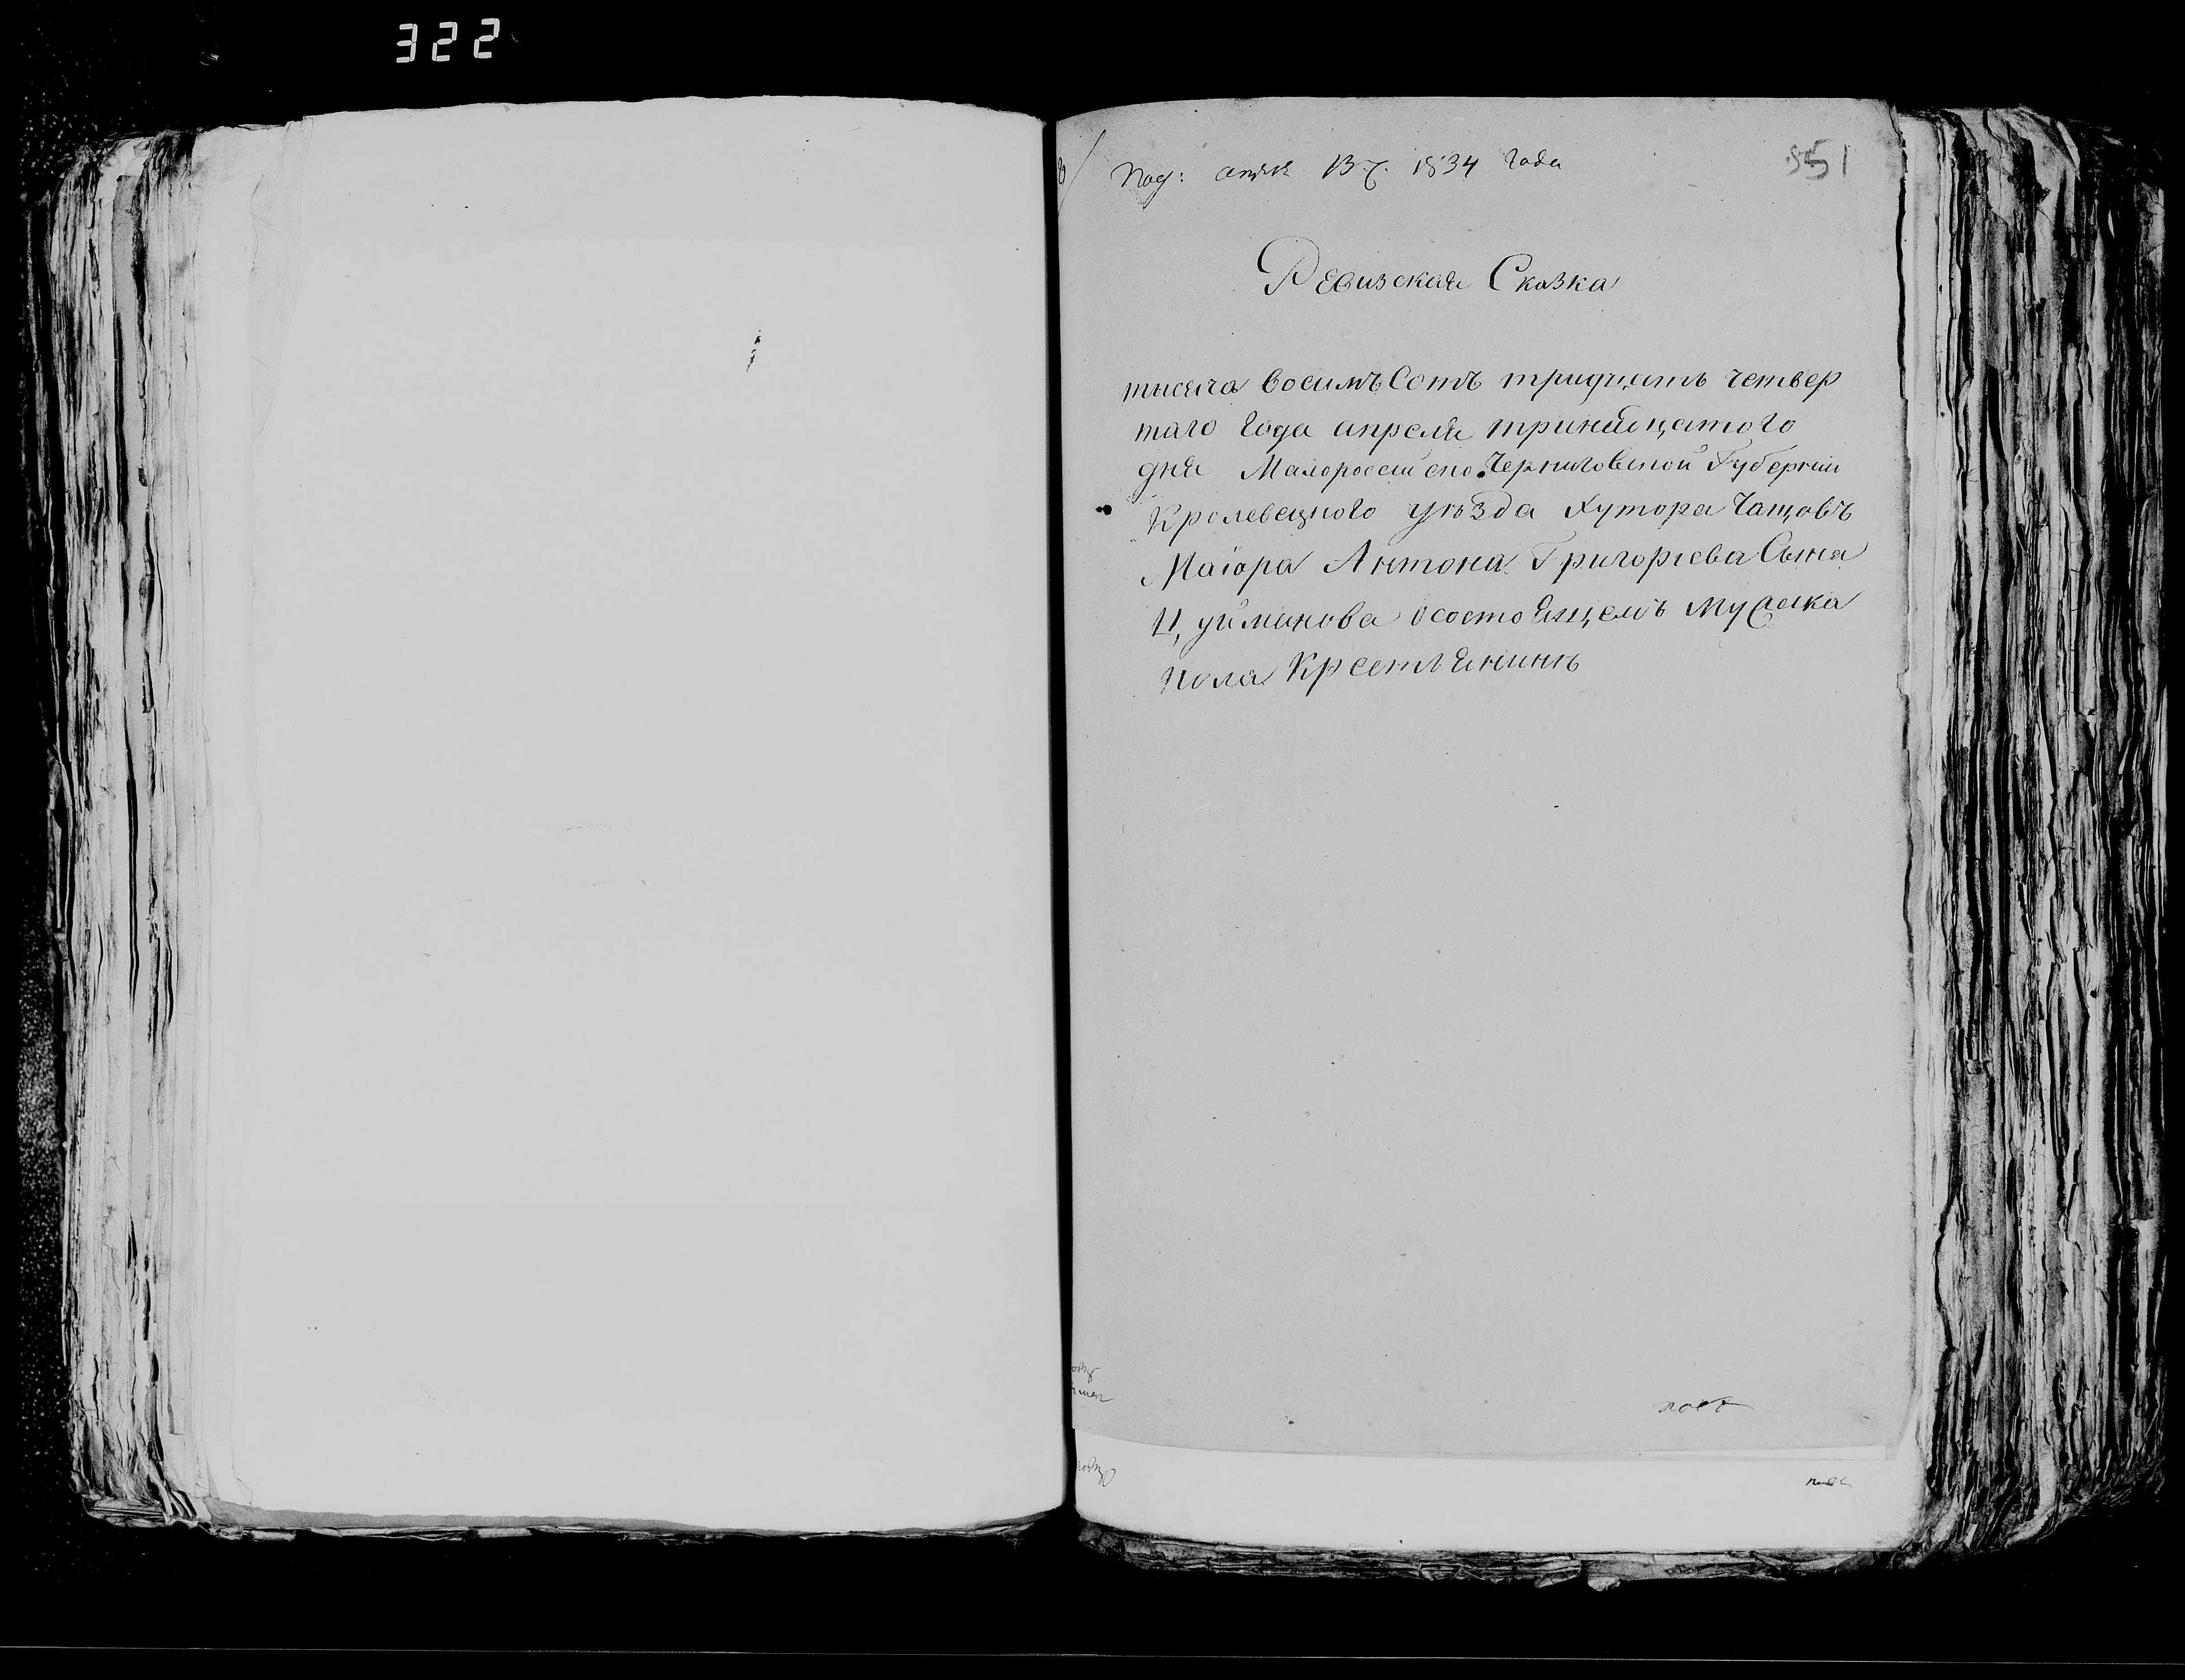 322
Под: апреля 13 1834 года
551
Ревизская Сказка
тысяча восимъ Сотъ тридцать четвер
таго года апреля тринадцатого
дня Малоросейско Черниговской Губернии
Кролевецкого уѣзда Хутора Чащовъ
Маіора Антона Григорьева Сына
Цуйманова осостоящемъ Мужеска
пола Крестьянинѣ